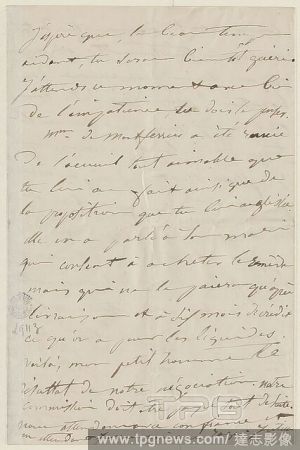 J'espère que, le beau temps
aidant, tu seras bientôt guéri.
J'attends ce moment avec bien
de l'impatience,
Mme de a été ravie
De l'accueil tout aimable que
tu lui as fait ainsi que de
la proposition que tu lui as
elle en a parlé à son mari
qui consent à acheter le
mais qui ne le paiera qu'après
livraison et à six mois de crédit
ce qu'on a pour les liquides.
voilà, mon petit homme le
résultat de notre négociation, notre
commission doit être
nous attendons confiance
en attendant
2943
TPG
www.tpgnews.com/達志影像